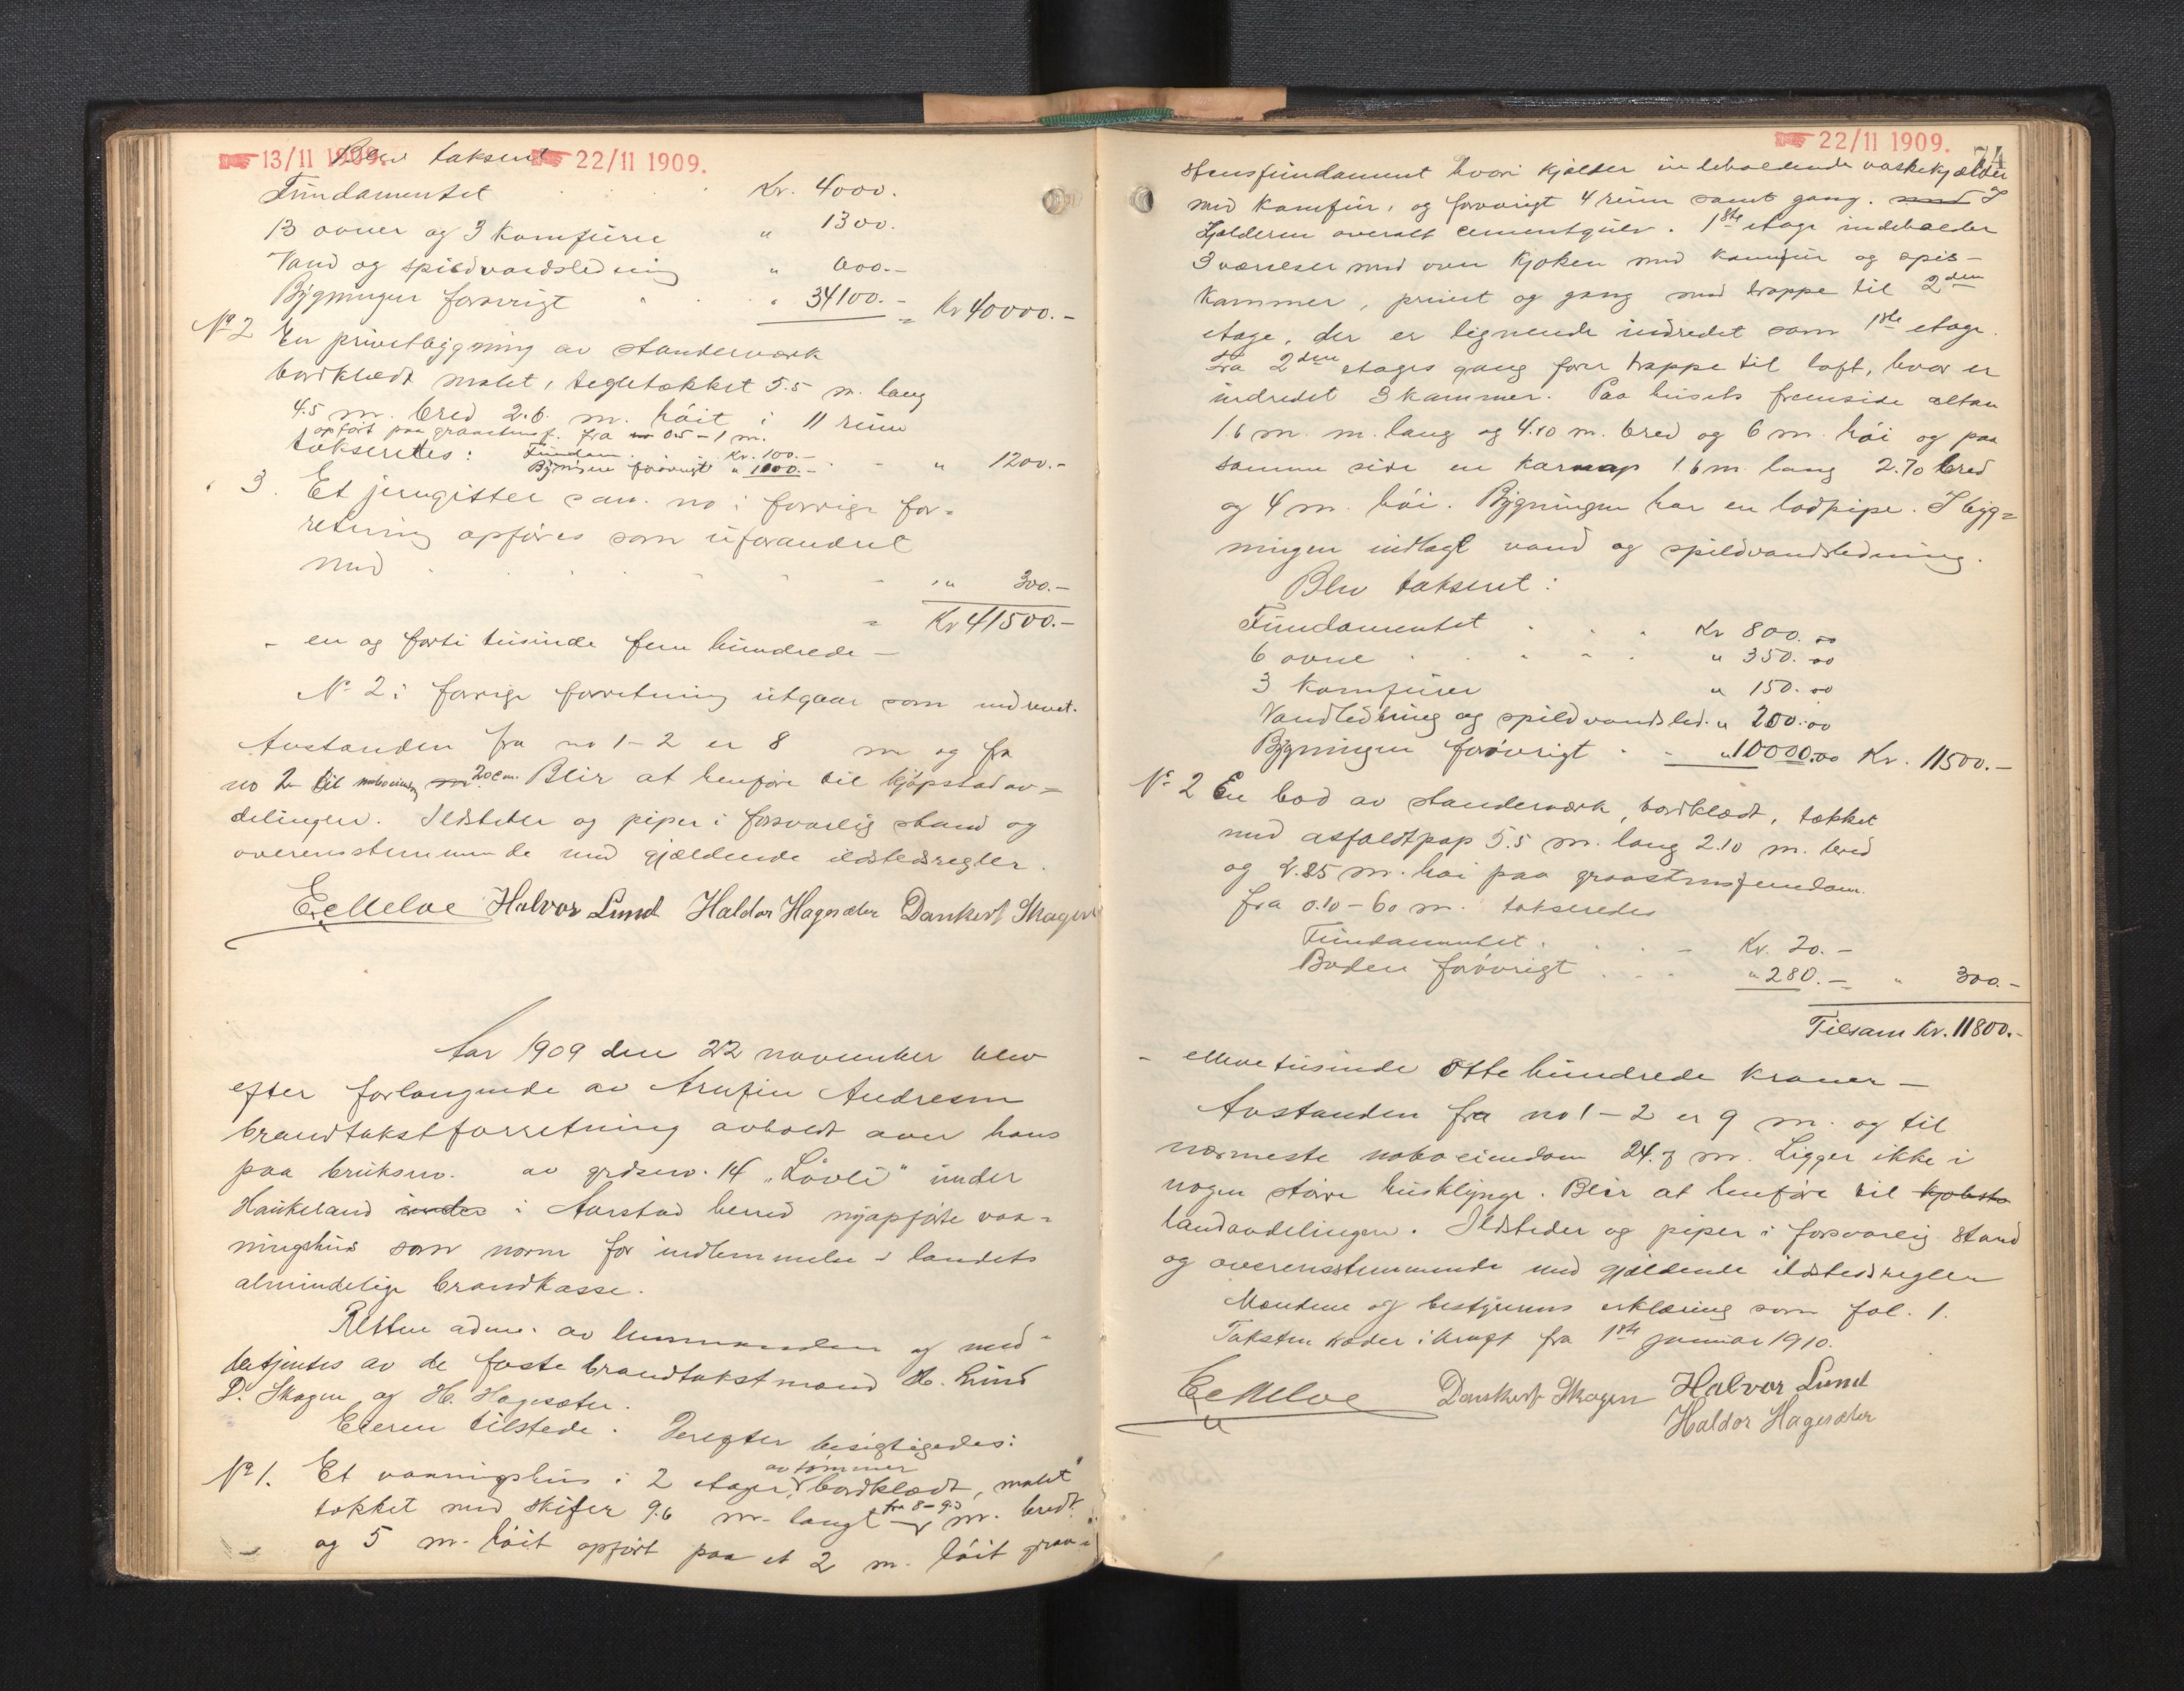 13/11 1909. Blev takseret 22/11 1909.
Fundamentet Kr. 4000.
13 ovner og 3 komfurer " 1300.
Vand og spildvandsledning " 600.-
Bygningen forøvrigt " 34100.- = Kr 40000.-
No 2 En privetbygning av standerværk
bordklædt malet, teglstækket 5.5 m. lang
4.5 m. bred 2.6. m. høit i 11 rum
opført paa graastensf. fra 0.5 - 1 m.
takseredes: Fundam. Kr. 100.-
Bygningen forøvrigt " 1100.- " 1200.-
" 3. Et jerngitter sam. no i forrige for=
retning opføres som uforandret
med " 300.-
= Kr 41500.-
- en og forti tusinde fem hundrede -
No 2 i forrige forretning utgaar som nedrevet.
Avstanden fra no 1-2 er 8 m og fra
no 2 til naboeiendom 20 cm. Blir at henføre til kjøpstadav=
delingen. Ildsteder og piper i forsvarlig stand og
overensstemmende med gjældende ildstedsregler.
Halvor Lund Haldor Hagesæter Dankert Skagen
Aar 1909 den 22 november blev
efter forlangende av Arnfin Andresen
brandtakstforretning avholdt over hans
paa bruksno. av grdsno. 14 "Løvli" under
Haukeland under i Aarstad herred nyopførte vaa=
ningshus som norm for indlemmelse i landets
almindelige brandkasse.
Retten adm. av lensmanden og med=
betjentes av de faste brandtakstmænd H. Lund
D. Skagen og H. Hagesæter.
Eieren tilstede. Derefter besigtigedes:
No 1. Et vaaningshus i 2 etager av tømmer bordklædt, malet
tækket med skifer 9.6 m. langt fra 8 - 9.3 m. bredt
og 5 m. høit opført paa et 2 m. høit graa=
22/11 1909.
74
stensfundament hvori kjælder indeholdende vaskekjælder
med komfur, og forøvrigt 4 rum samt gang. med og I
Kjælderen overalt cementgulv. 1ste etage indeholder
3 værelser med ovn kjøken med komfur og spis-
kammer, privet og gang med trappe til 2den
etage, der er lignende indredet som 1ste etage.
Fra 2den etages gang fører trappe til loft, hvor er
indredet 3 kammer. Paa husets fremside altan
1.6 m. m. lang og 4.10 m. bred og 6 m. høi og paa
samme side en karnap 1.6 m. lang 2.70 bred
og 4 m. høi. Bygningen har en lodpipe. I byg=
ningen indlagt vand og spildvandsledning.
Blev takseret:
Fundamentet Kr 800.00
6 ovne " 350.00
3 komfurer " 150.00
Vandledning og spildvandsled. " 200.00
Bygningen forøvrigt " 10000.00 Kr. 11500.-
No 2 En bod av standerværk, bordklædt, tækket
med asfaldtpap 5.5 m. lang 2.10 m. bred
og 2.25 m. høi paa graastensfundam.
fra 0.10 - 60 m. takseredes
Fundamentet Kr. 20.-
Boden forøvrigt " 280.- " 300.-
Tilsam Kr. 11800.-
- elleve tusinde otte hundrede kroner -
Avstanden fra no 1-2 er 9 m. og til
nærmeste naboeiendom 24.7 m. Ligger ikke i
nogen større husklynge. Blir at henføre til kjøbsta
landavdelingen. Ildsteder og piper i forsvarlig stand
og overensstemmende med gjældende ildstedsregler
Mændene og bestyrerens erklæring som fol. 1.
Taksten træder i kraft fra 1ste januar 1910.
Dankert Skagen Halvor Lund
Haldor Hagesæter